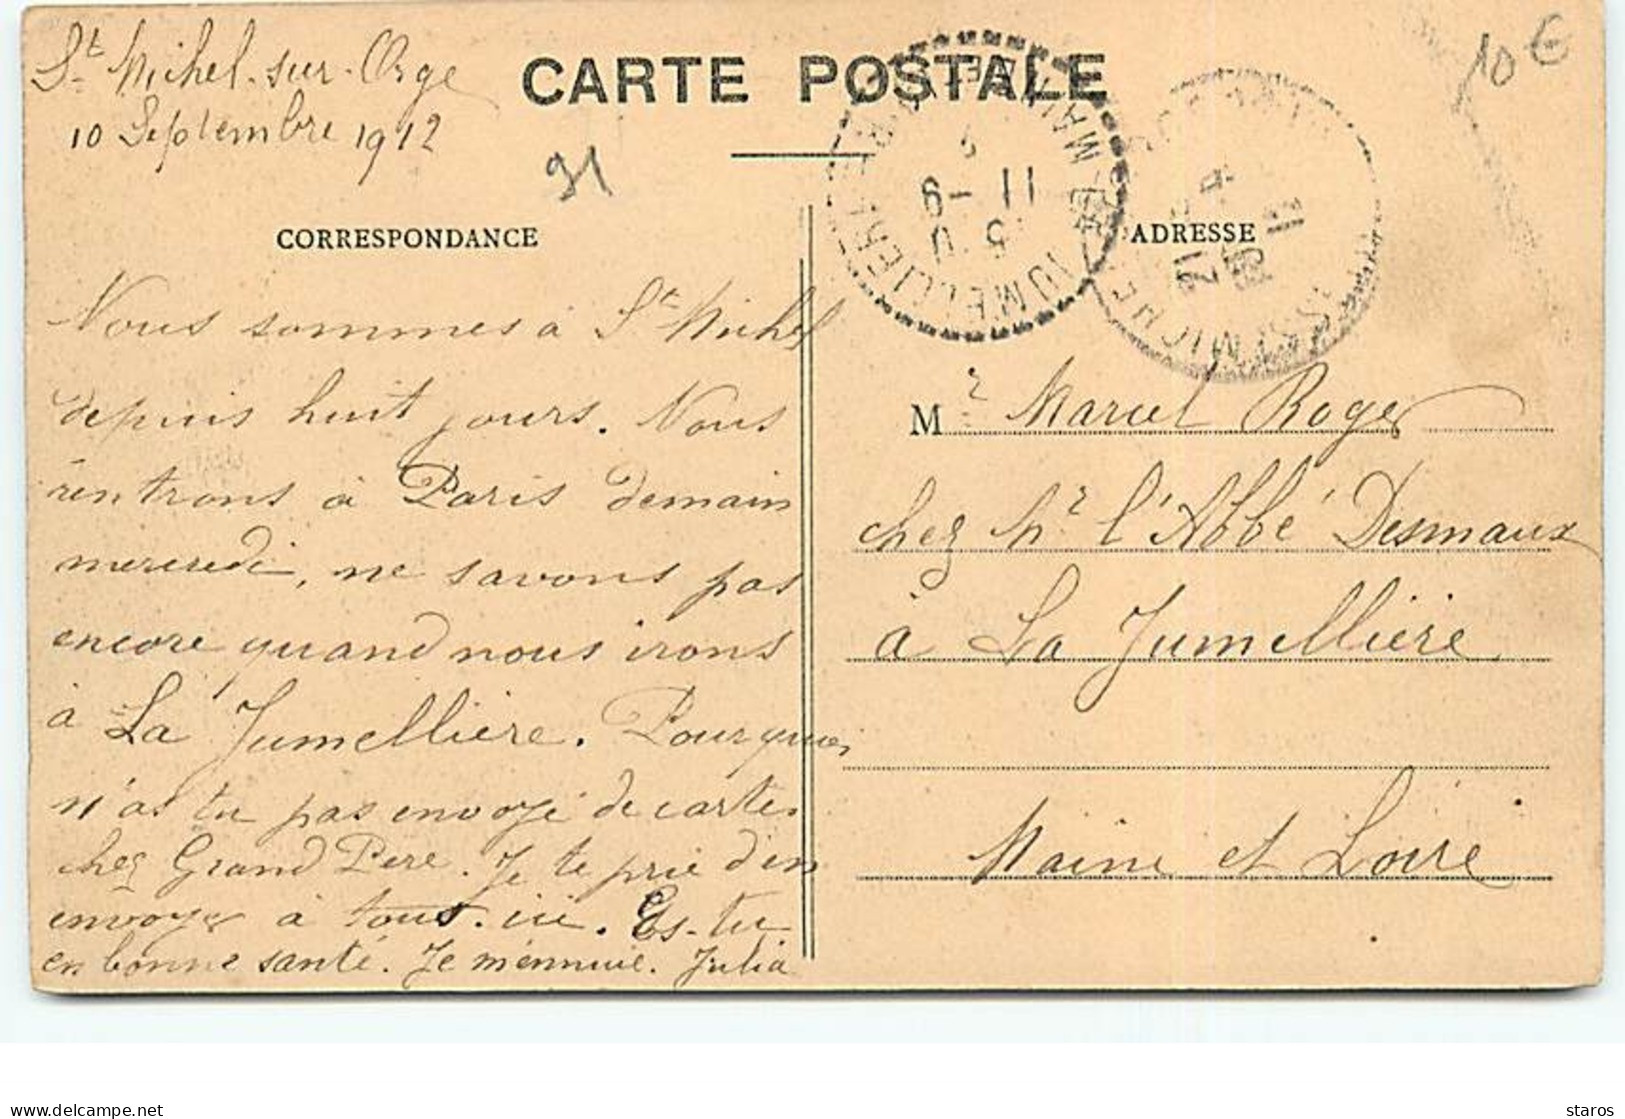 St Michel-sur-Orge
10 Septembre 1912
CARTE POSTALE
10 €
91
CORRESPONDANCE
ADRESSE
11 -9
Nous sommes à St Michel
depuis huit jours. Nous
rentrons à Paris demain
mercredi, ne savons pas
encore quand nous irons
à La Jumellière. Pourquoi
n'as tu pas envoyé de cartes
chez Grand Père. Je te prie d'en
envoyer à tous ici. Es-tu
en bonne santé. Je m'ennuie. Julia
Mr Marcel Roger
chez Mr l'Abbé Desmaux
à La Jumellière
Maine et Loire
delcampe.net
staros